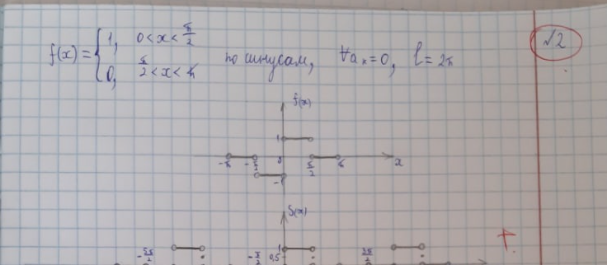 √2
f(x) = { 1, 0 < x < π/2
0, π/2 < x < π по синусам, ∀aₙ = 0, l = 2π
f(x)
1
-π -π/2 0 π/2 π x
-1
f(x)
1
-5π/2 -π/2 0,5 3π/2